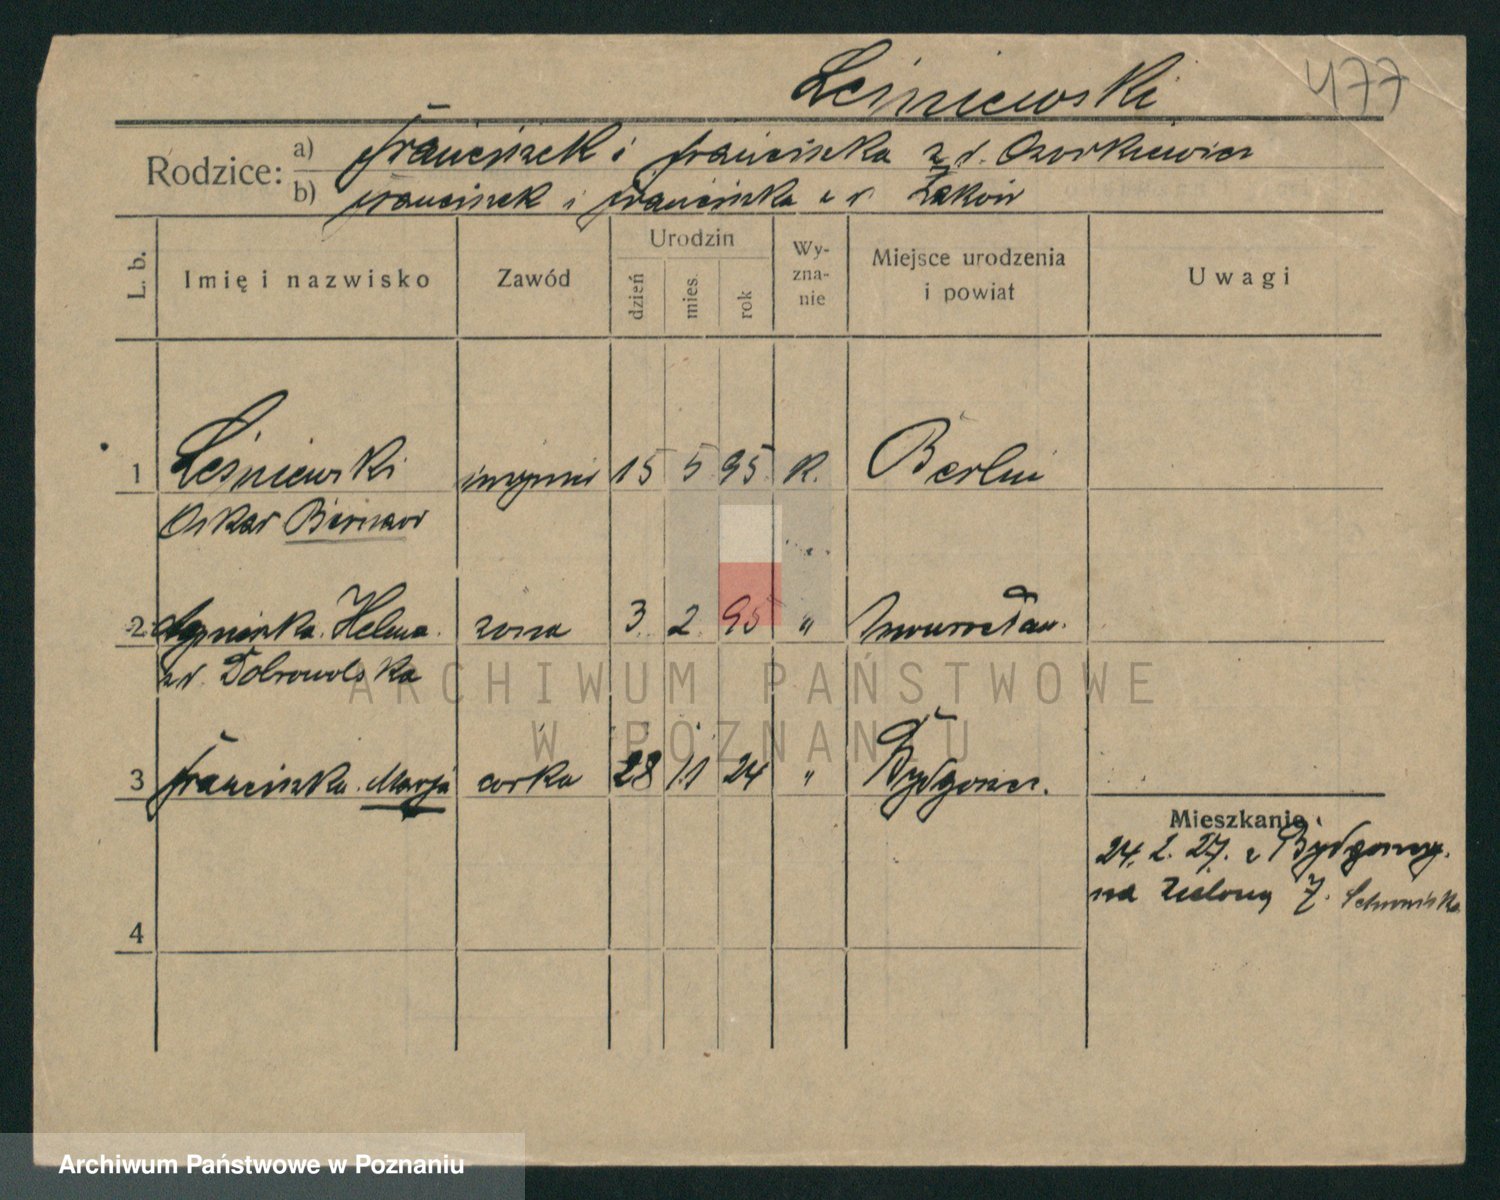 Leśniewski
477
Rodzice:
a) Franciszek i Franciszka z d.
b) Franciszek i Franciszka z d.
L. b.
Imię i nazwisko
Zawód
Urodzin
dzień
mies.
rok
Wy-
zna-
nie
Miejsce urodzenia
i powiat
Uwagi
1 Leśniewski 15 5 95 k. Berlin
Oskar Bernard
2 Agnieszka Helena żona 3. 2. 95 " Inowrocław.
z d. Dobrowolska
3 Franciszka Marja córka 28 11 24 " Bydgoszcz.
Mieszkanie
24. 2. 27. z Bydgoszczy.
na Zieloną 7.
4
ARCHIWUM PAŃSTWOWE
W POZNANIU
Archiwum Państwowe w Poznaniu